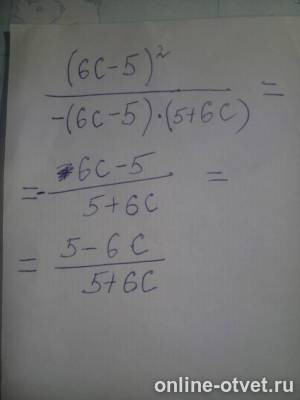 (6C-5)²
-(6C-5)·(5+6C) =
= - 6C-5 =
5+6C
= 5-6C
5+6C
online-otvet.ru